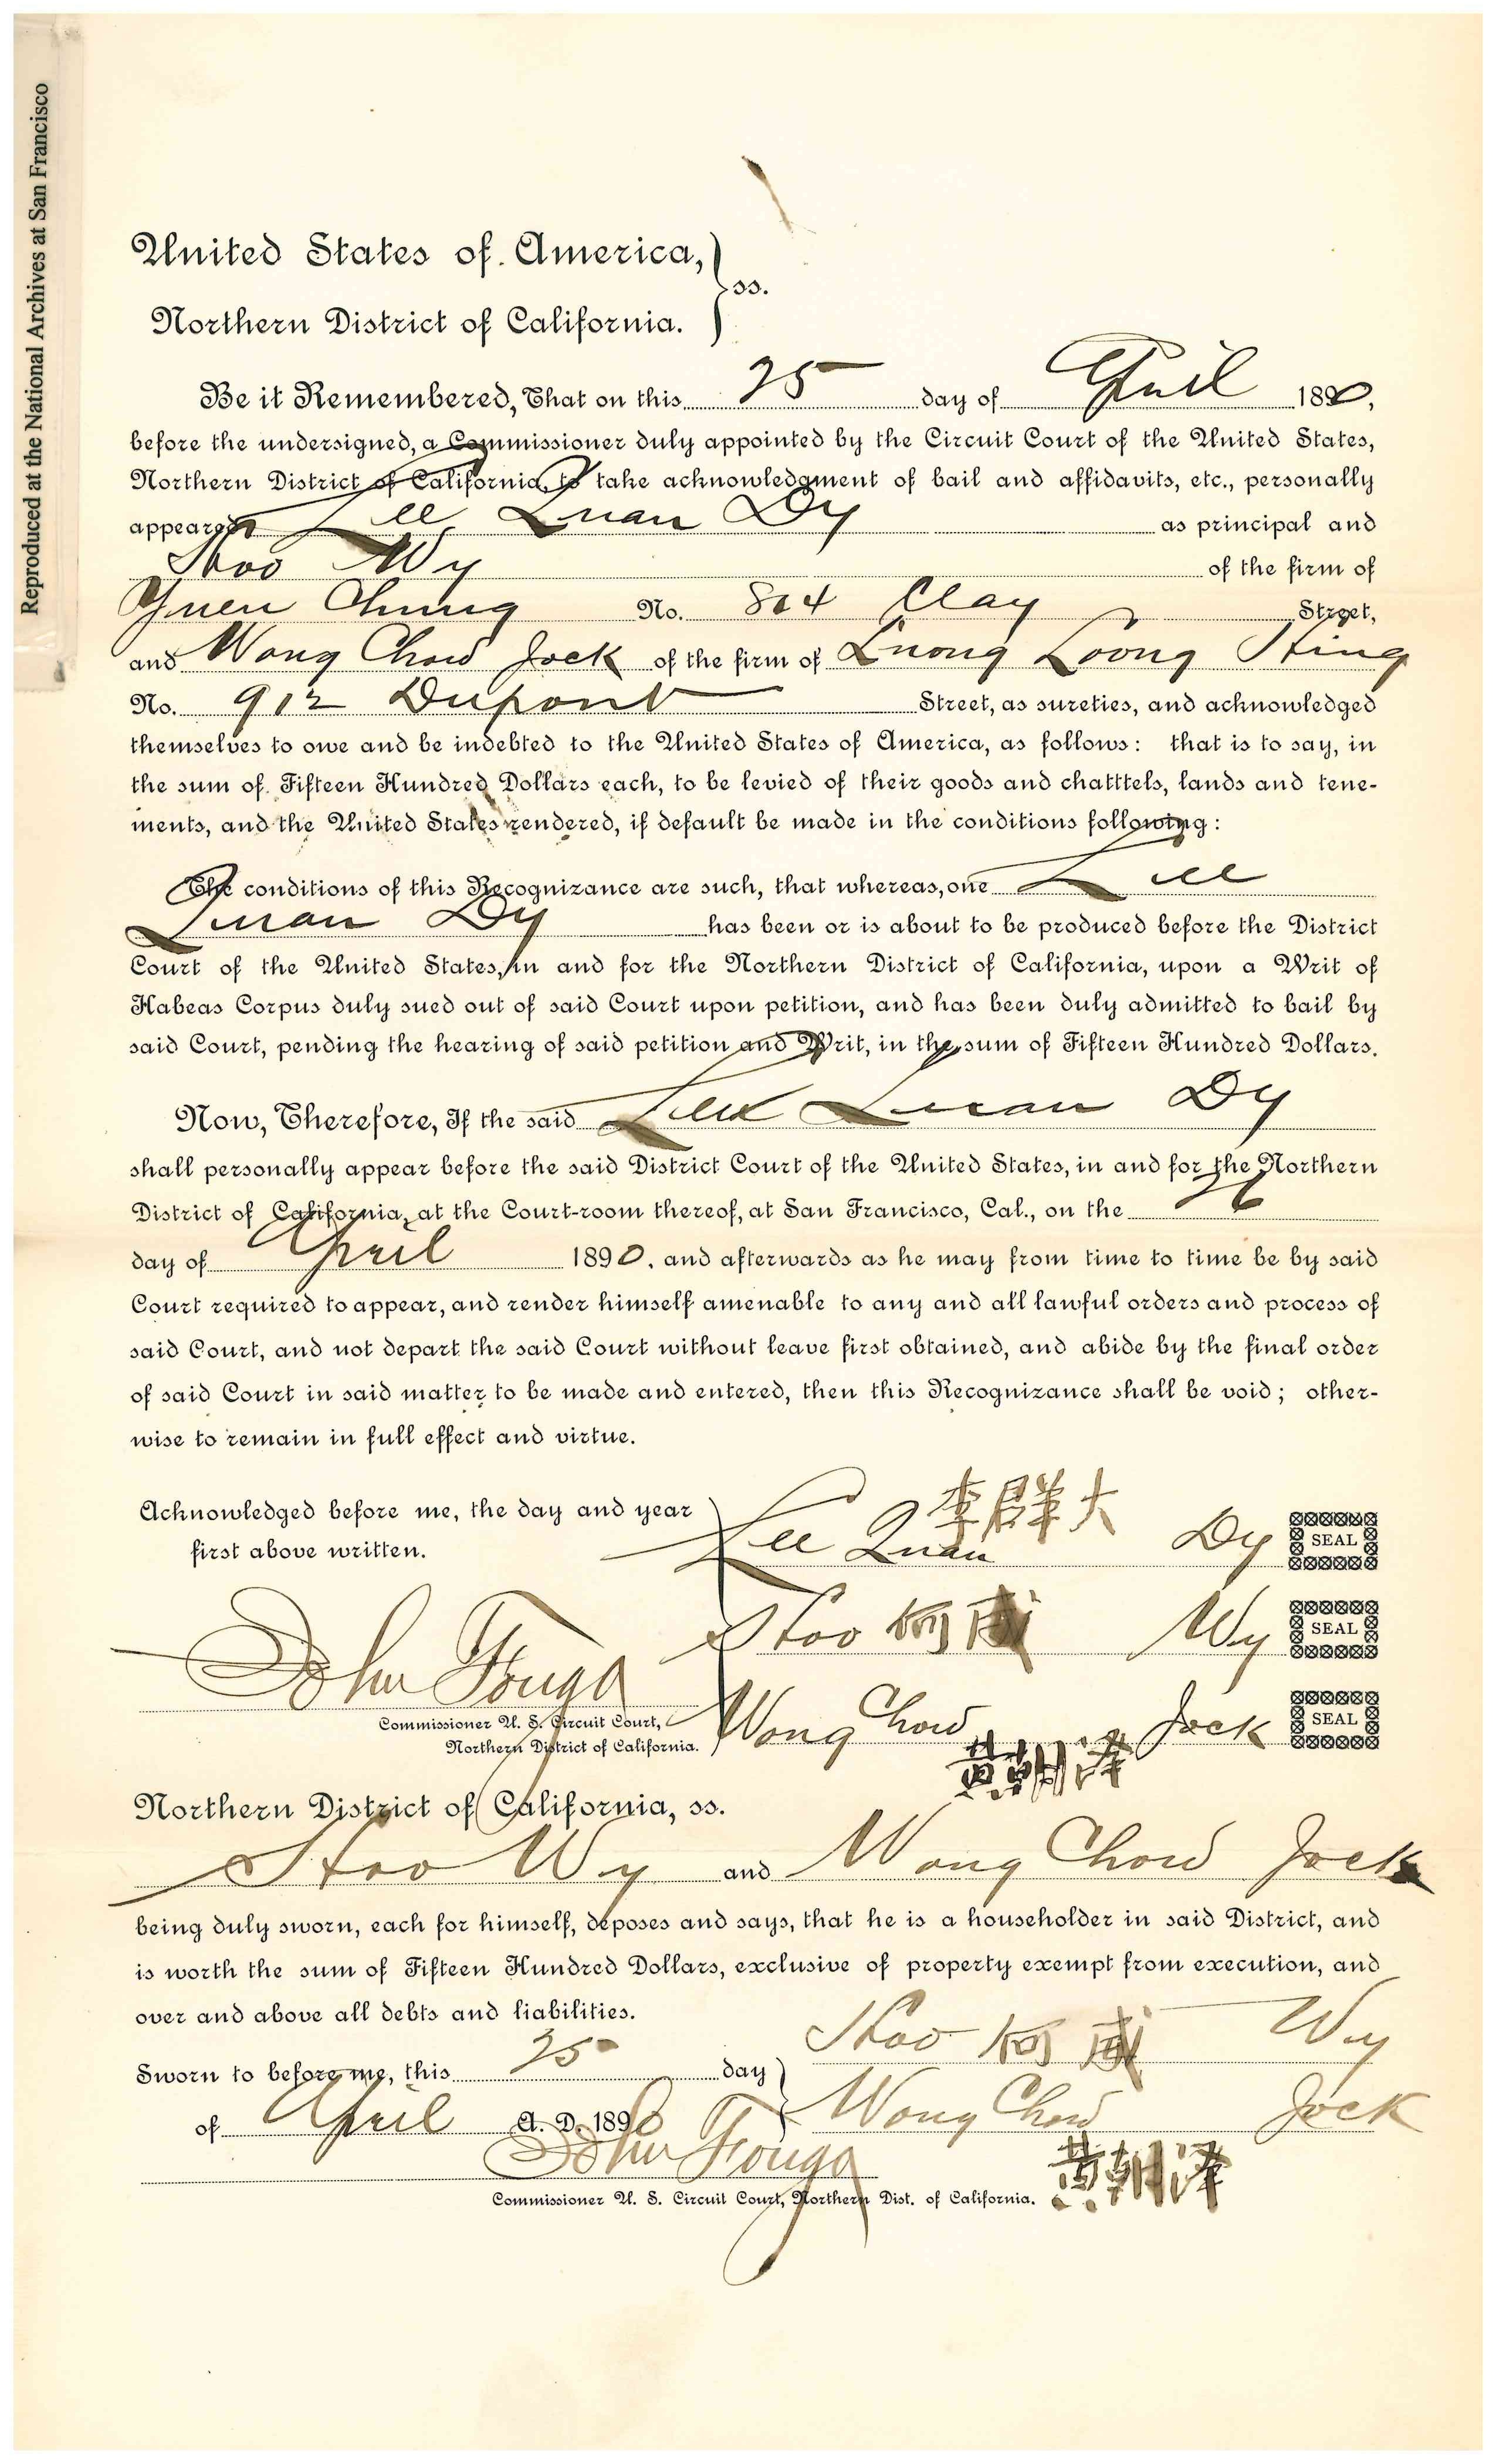 Reproduced at the National Archives at San Francisco
United States of America,
ss.
Northern District of California.
Be it Remembered, That on this 25 day of April 1890,
before the undersigned, a Commissioner duly appointed by the Circuit Court of the United States,
Northern District of California, to take acknowledgment of bail and affidavits, etc., personally
appeared Lee Quan Dy as principal and
Hoo Wy of the firm of
Yuen Chung No. 804 Clay Street,
and Wong Chow Jock of the firm of Quong Loong Hing
No. 912 Dupont Street, as sureties, and acknowledged
themselves to owe and be indebted to the United States of America, as follows: that is to say, in
the sum of Fifteen Hundred Dollars each, to be levied of their goods and chatttels, lands and tene-
ments, and the United States rendered, if default be made in the conditions following:
The conditions of this Recognizance are such, that whereas, one Lee
Quan Dy has been or is about to be produced before the District
Court of the United States, in and for the Northern District of California, upon a Writ of
Habeas Corpus duly sued out of said Court upon petition, and has been duly admitted to bail by
said Court, pending the hearing of said petition and Writ, in the sum of Fifteen Hundred Dollars.
Now, Therefore, If the said Lee Quan Dy
shall personally appear before the said District Court of the United States, in and for the Northern
District of California, at the Court-room thereof, at San Francisco, Cal., on the 26
day of April 1890, and afterwards as he may from time to time be by said
Court required to appear, and render himself amenable to any and all lawful orders and process of
said Court, and not depart the said Court without leave first obtained, and abide by the final order
of said Court in said matter to be made and entered, then this Recognizance shall be void; other-
wise to remain in full effect and virtue.
Acknowledged before me, the day and year
first above written.
Lee Quan 李群大 Dy SEAL
Hoo 何 Wy SEAL
John Fouga
Commissioner U. S. Circuit Court,
Northern District of California.
Wong Chow Jock SEAL
黄朝澤
Northern District of California, ss.
Hoo Wy and Wong Chow Jock
being duly sworn, each for himself, deposes and says, that he is a householder in said District, and
is worth the sum of Fifteen Hundred Dollars, exclusive of property exempt from execution, and
over and above all debts and liabilities.
Hoo 何 Wy
Sworn to before me, this 25 day
Wong Chow Jock
of April A. D. 1890
John Fouga
黄朝澤
Commissioner U. S. Circuit Court, Northern Dist. of California.